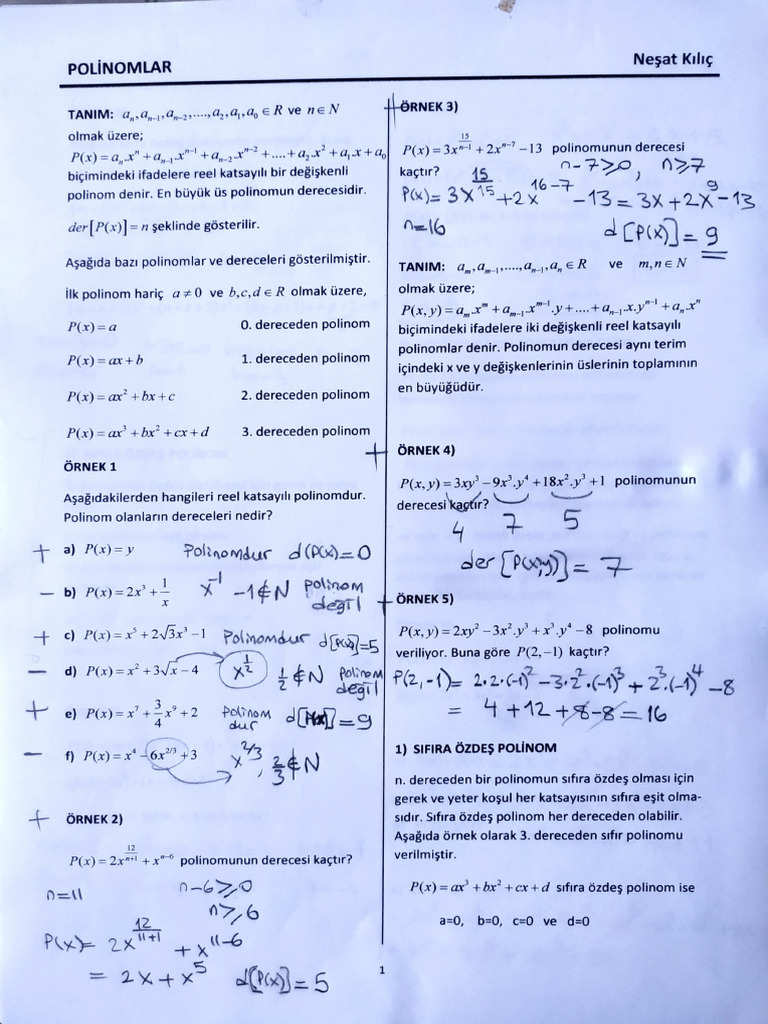 POLİNOMLAR
Neşat Kılıç
TANIM: aₙ, aₙ₋₁, aₙ₋₂, ...., a₂, a₁, a₀ ∈ R ve n ∈ N
olmak üzere;
P(x) = aₙ.xⁿ + aₙ₋₁.xⁿ⁻¹ + aₙ₋₂.xⁿ⁻² + .... + a₂.x² + a₁.x + a₀
biçimindeki ifadelere reel katsayılı bir değişkenli
polinom denir. En büyük üs polinomun derecesidir.
der[P(x)] = n şeklinde gösterilir.
Aşağıda bazı polinomlar ve dereceleri gösterilmiştir.
İlk polinom hariç a ≠ 0 ve b,c,d ∈ R olmak üzere,
P(x) = a 0. dereceden polinom
P(x) = ax + b 1. dereceden polinom
P(x) = ax² + bx + c 2. dereceden polinom
P(x) = ax³ + bx² + cx + d 3. dereceden polinom
ÖRNEK 1
Aşağıdakilerden hangileri reel katsayılı polinomdur.
Polinom olanların dereceleri nedir?
+ a) P(x) = y Polinomdur d(P(x)=0
– b) P(x) = 2x³ + 1/x x⁻¹ -1 ∉ N polinom değil
+ c) P(x) = x⁵ + 2√3x³ – 1 Polinomdur d[P(x)]=5
– d) P(x) = x² + 3√x – 4 x^(1/2) 1/2 ∉ N polinom değil
+ e) P(x) = x⁷ + 3/4 x⁹ + 2 polinom dur d[P(x)]=9
– f) P(x) = x⁴ – 6x^(2/3) + 3 x^(2/3), 2/3 ∉ N
+ ÖRNEK 2)
P(x) = 2x^(12/(n+1)) + xⁿ⁻⁶ polinomunun derecesi kaçtır?
n=11 n-6⩾0
n⩾6
P(x)= 2x^(12/(11+1)) + x^(11-6)
= 2x + x⁵ d[P(x)]=5
+ ÖRNEK 3)
P(x) = 3x^(15/(n-1)) + 2xⁿ⁻⁷ – 13 polinomunun derecesi
kaçtır? n-7⩾0, n⩾7
P(x)= 3x^(15/15) + 2x^(16-7) -13 = 3x+2x⁹-13
n=16 d[P(x)]=9
TANIM: aₘ, aₘ₋₁, ...., aₙ₋₁, aₙ ∈ R ve m,n ∈ N
olmak üzere;
P(x,y) = aₘxᵐ + aₘ₋₁xᵐ⁻¹.y + .... + aₙ₋₁x.yⁿ⁻¹ + aₙxⁿ
biçimindeki ifadelere iki değişkenli reel katsayılı
polinomlar denir. Polinomun derecesi aynı terim
içindeki x ve y değişkenlerinin üslerinin toplamının
en büyüğüdür.
+ ÖRNEK 4)
P(x,y) = 3xy³ – 9x³.y⁴ + 18x².y³ + 1 polinomunun
derecesi kaçtır?
4 7 5
der[P(x,y)]= 7
+ ÖRNEK 5)
P(x,y) = 2xy² – 3x².y³ + x³.y⁴ – 8 polinomu
veriliyor. Buna göre P(2,–1) kaçtır?
P(2,-1)= 2.2.(-1)² - 3.2².(-1)³ + 2³.(-1)⁴ - 8
= 4+12+8-8=16
1) SIFIRA ÖZDEŞ POLİNOM
n. dereceden bir polinomun sıfıra özdeş olması için
gerek ve yeter koşul her katsayısının sıfıra eşit olma-
sıdır. Sıfıra özdeş polinom her dereceden olabilir.
Aşağıda örnek olarak 3. dereceden sıfır polinomu
verilmiştir.
P(x) = ax³ + bx² + cx + d sıfıra özdeş polinom ise
a=0, b=0, c=0 ve d=0
1